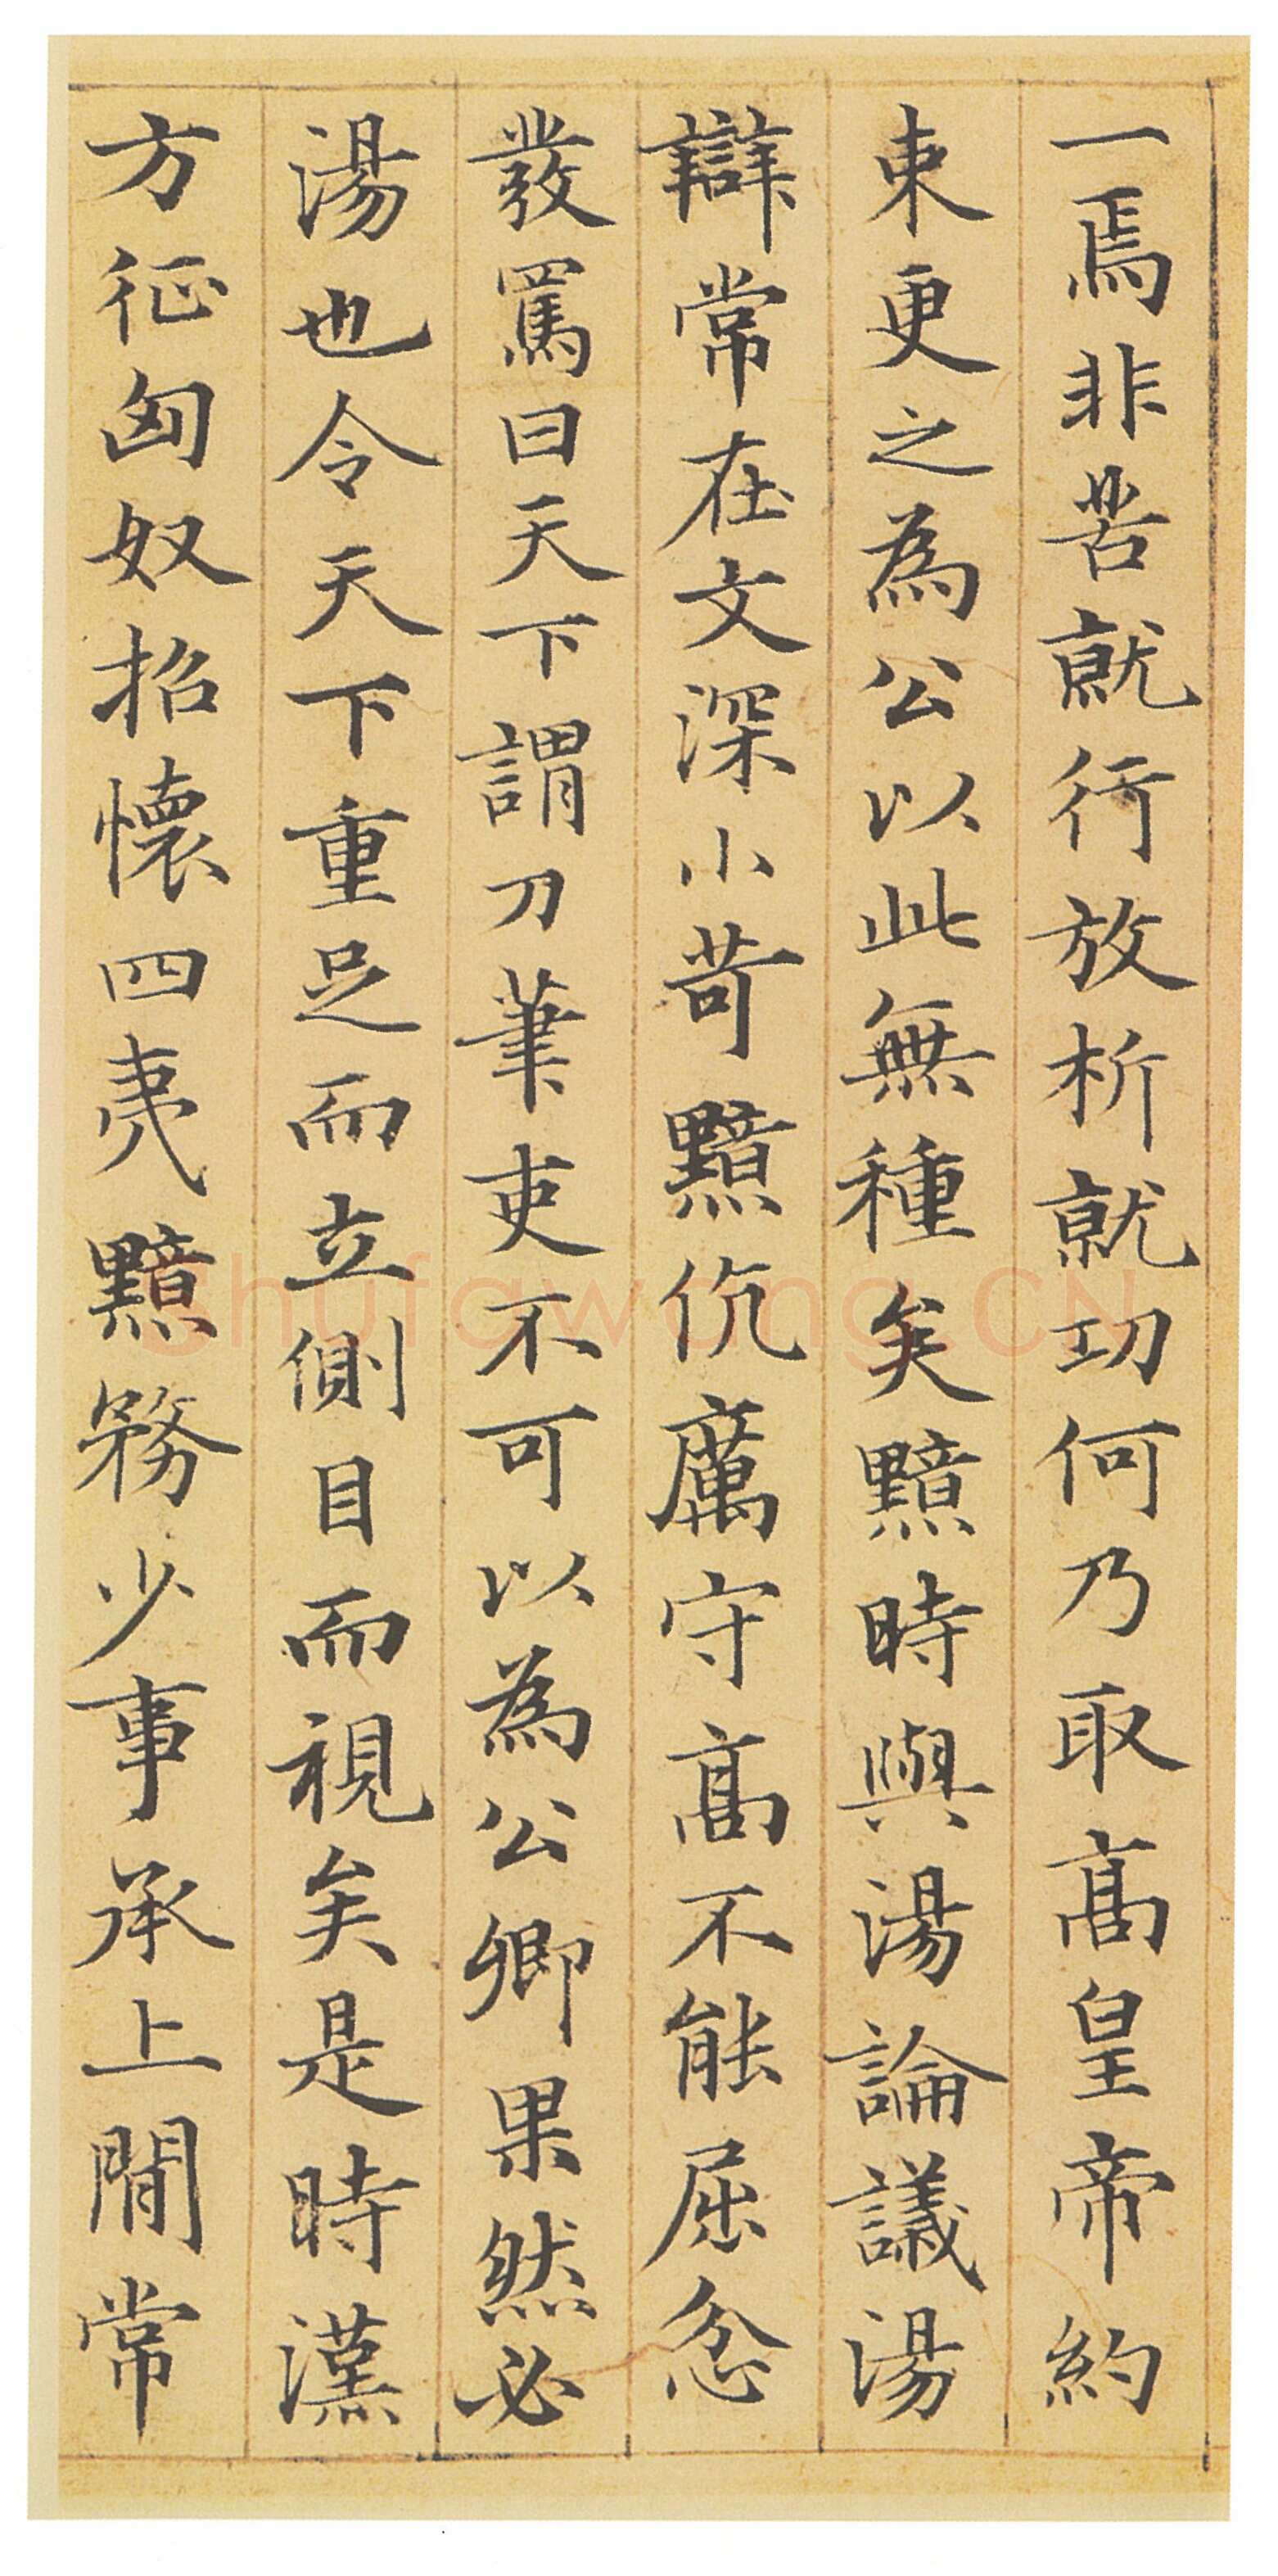 一焉非苦就行放析就功何乃取高皇帝約
束更之為公以此無種矣黯時與湯論議湯
辯常在文深小苛黯伉厲守高不能屈忿
發罵曰天下謂刀筆吏不可以為公卿果然必
湯也令天下重足而立側目而視矣是時漢
方征匈奴招懷四夷黯務少事承上間常
shufawang.CN